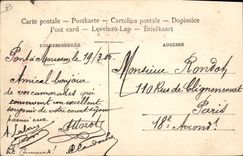 Carte postale - Postkarte - Cartolina postale - Dopisnice
Post card - Levelező-Lap - Briefkaart
CORRESPONDENCE
ADRESSE
Pont à Mousson, le 19/2.05
Amical bonjour
de vos camarades qui
conservent un excellent
souvenir de votre court
parmi eux
Monsieur Rondot
110 Rue Clignancourt
Paris
18e Arrondt